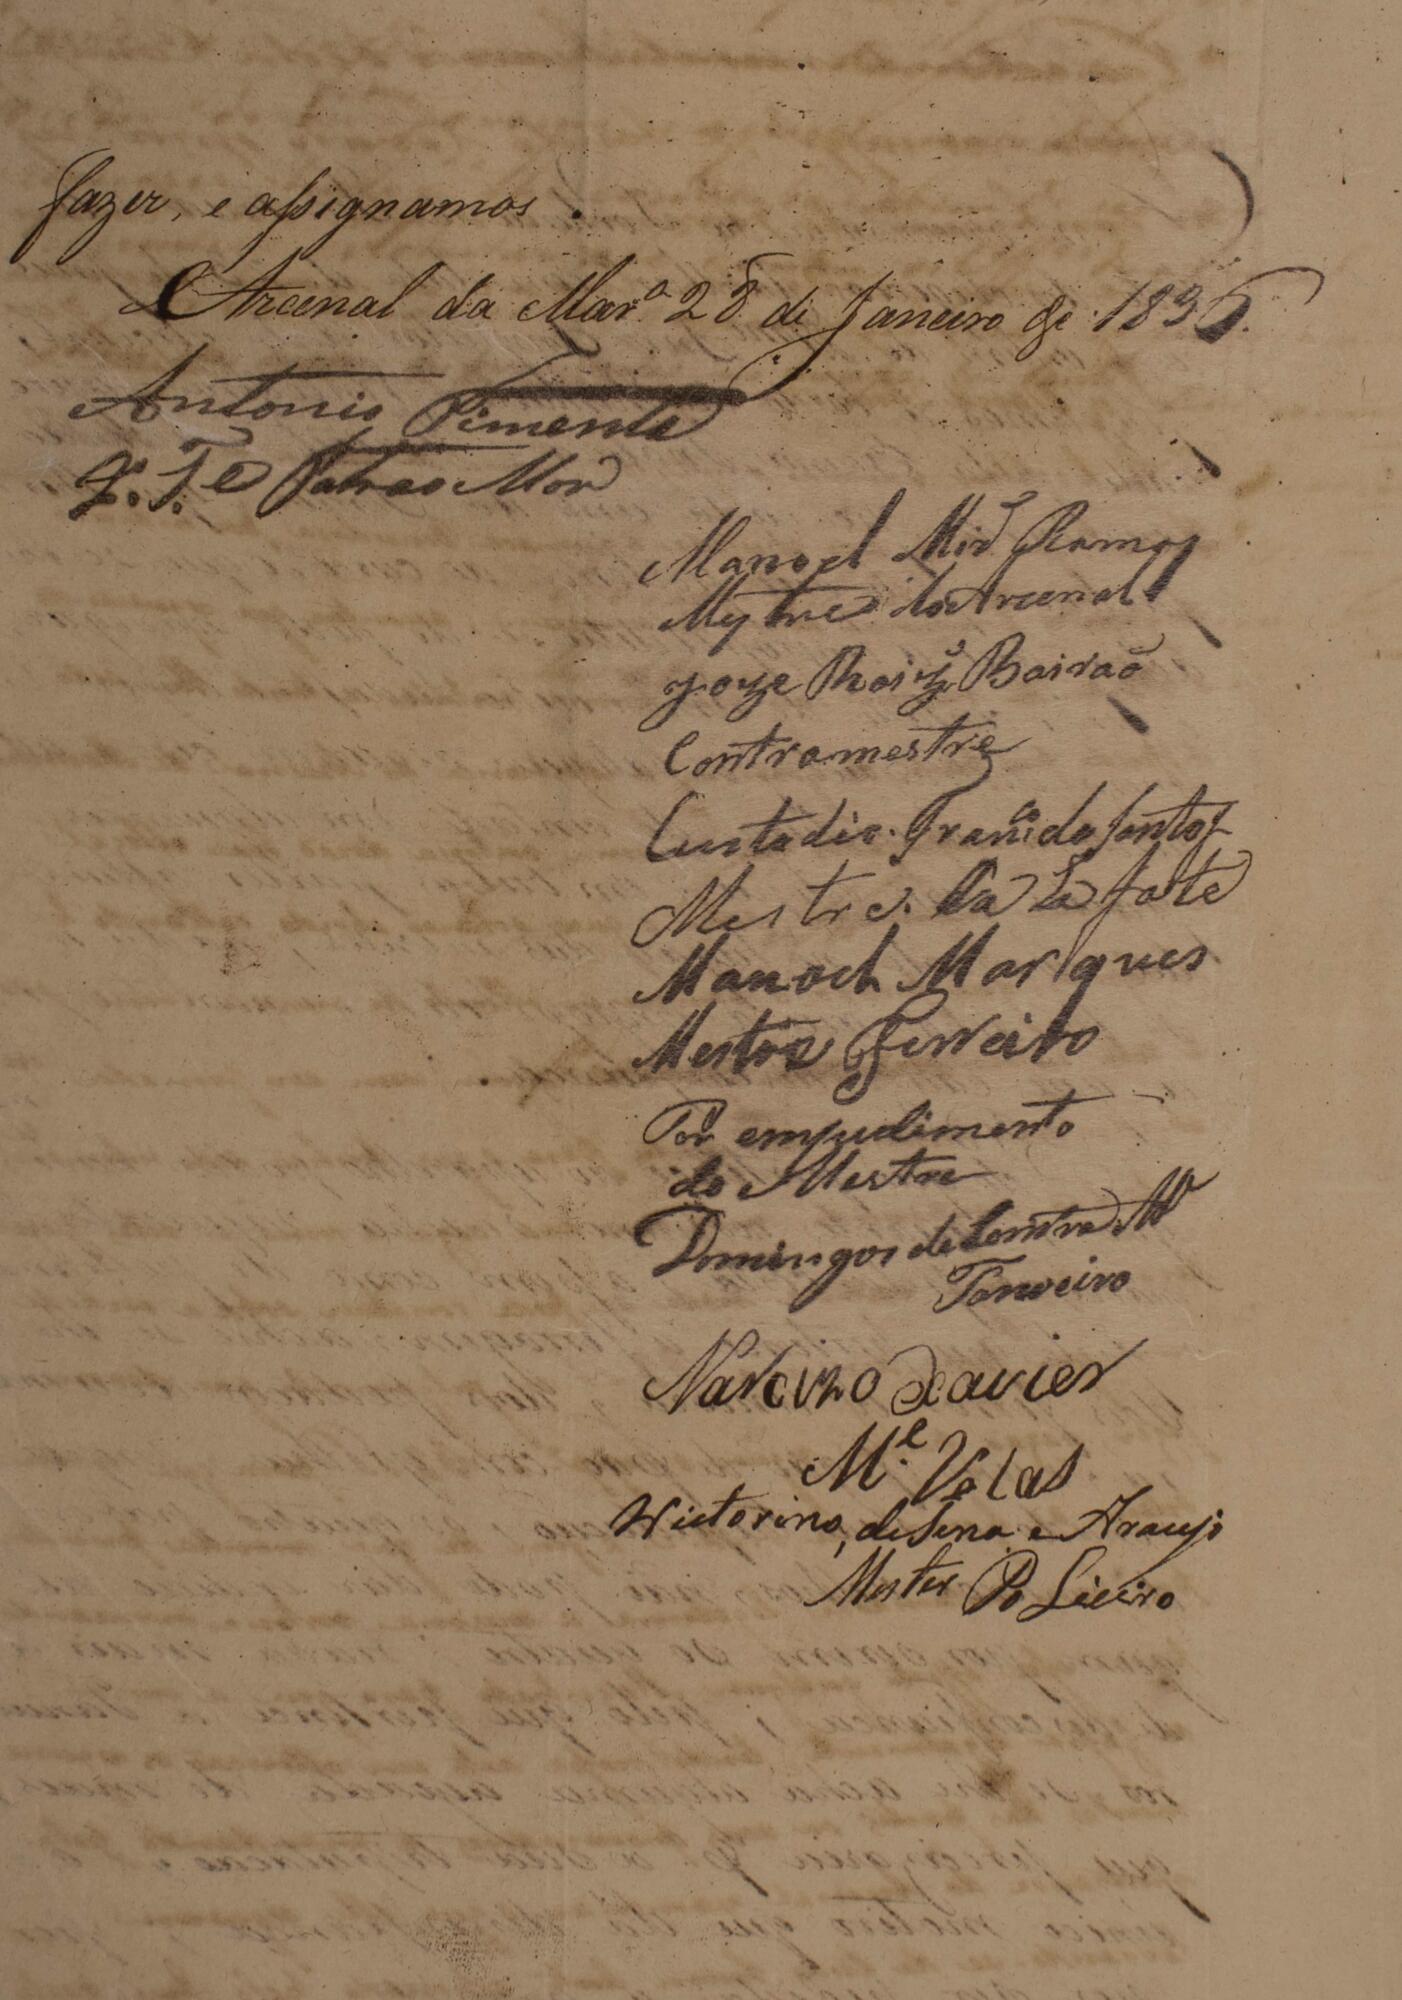 fazer, e assignamos.
Arcenal da Mar.ª 28 de Janeiro de 1836.
Antonio Pimenta
2.º T.e Patrao Mor
Manoel Ramos
Mestre do Arcenal
Joze Roiz Bairaõ
Contramestre
Custodio Fran.co do Santos
Mestre da La fate
Manoel Marques
Mestre Ferreiro
Por empudimento
do Mestre
Domingos de
Tanoeiro
Narcizo Xavier
M.e Velas
Wictorino, de Sena e Araujo
Mester Po Lieiro